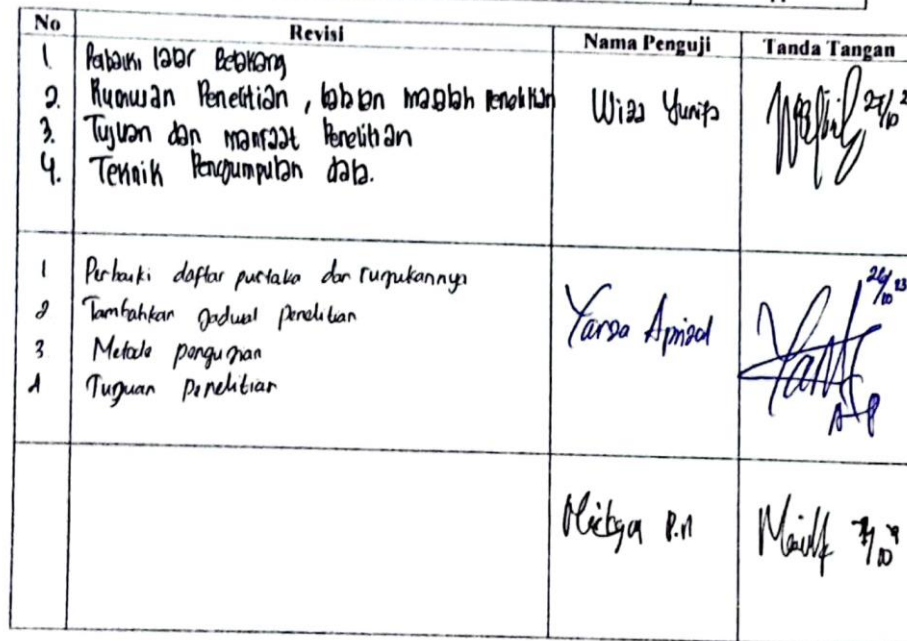 No Revisi Nama Penguji Tanda Tangan
1. Perbaiki latar Belakang
2. Rumusan Penelitian, batasan masalah Penelitian
3. Tujuan dan manfaat Penelitian
4. Teknik Pengumpulan data.
Wiza Yunifa
27/10
1 Perbaiki daftar pustaka dan rujukannya
2 Tambahkan Jadwal penelitian
3 Metode pengujian
4 Tujuan Penelitian
Yarza Aprizal
26/10 23